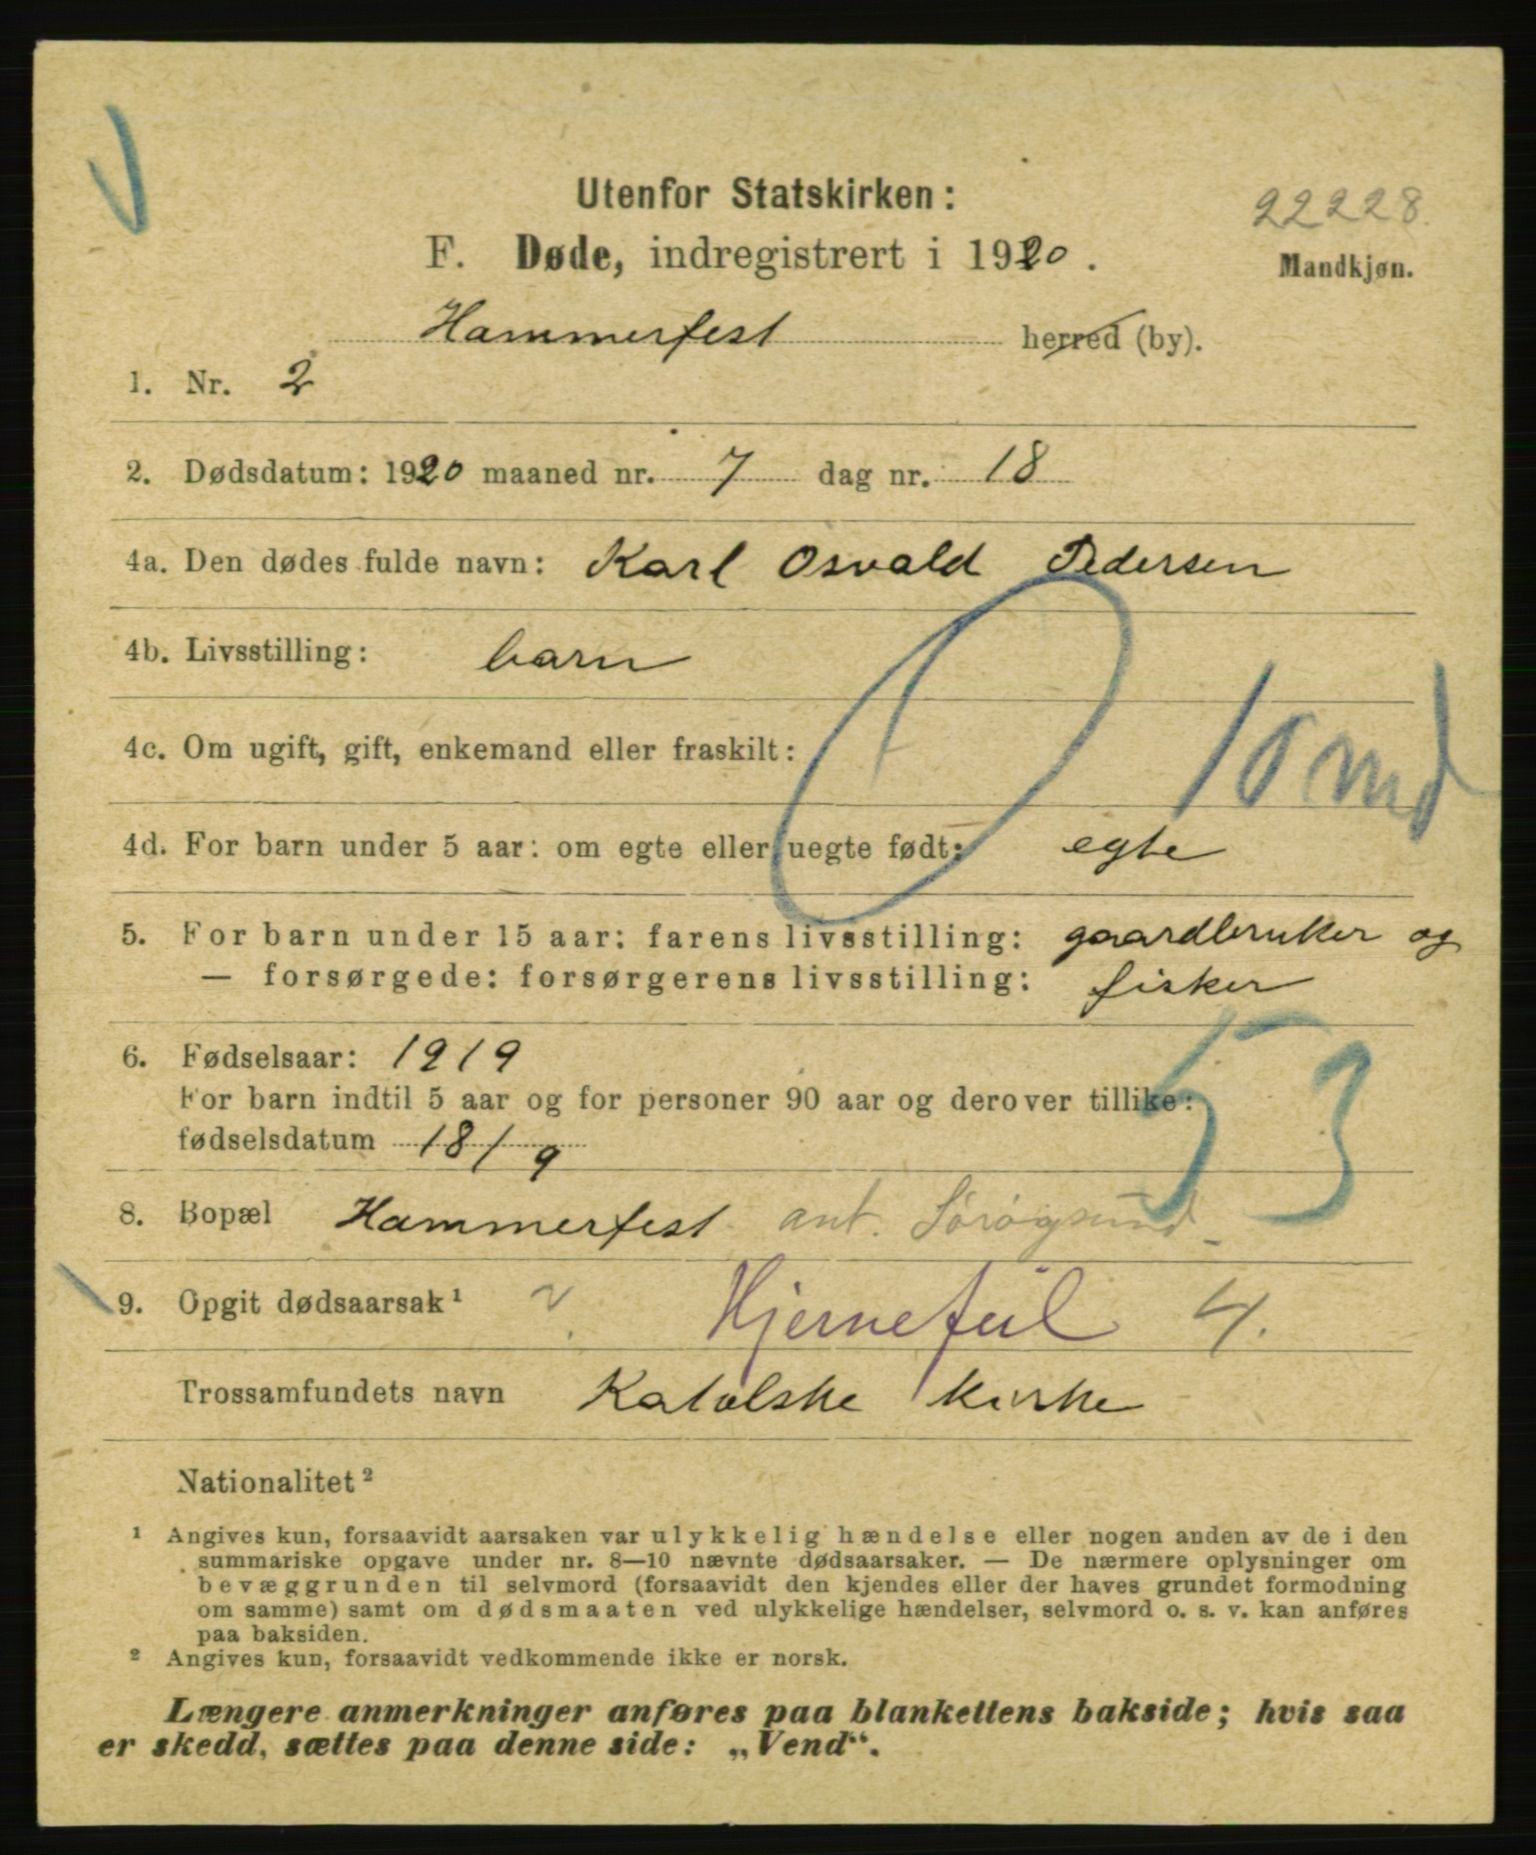 Utenfor Statskirken:
22228.
F. Døde, indregistrert i 1920.
Mandkjøn.
Hammerfest herred (by).
1. Nr. 2
2. Dødsdatum: 1920 maaned nr. 7 dag nr. 18
4a. Den dødes fulde navn: Karl Osvald Pedersen
4b. Livsstilling: barn
4c. Om ugift, gift, enkemand eller fraskilt:
10 md
4d. For barn under 5 aar: om egte eller uegte født: egte
5. For barn under 15 aar: farens livsstilling: gaardbruker og
— forsørgede: forsørgerens livsstilling: fisker
6. Fødselsaar: 1919
53
For barn indtil 5 aar og for personer 90 aar og derover tillike:
fødselsdatum 18/9
8. Bopæl Hammerfest ant. Sørøysund
9. Opgit dødsaarsak¹ Hjernefeil 4.
Trossamfundets navn Katolske kirke
Nationalitet²
¹ Angives kun, forsaavidt aarsaken var ulykkelig hændelse eller nogen anden av de i den
summariske opgave under nr. 8—10 nævnte dødsaarsaker. — De nærmere oplysninger om
bevæggrunden til selvmord (forsaavidt den kjendes eller der haves grundet formodning
om samme) samt om dødsmaaten ved ulykkelige hændelser, selvmord o. s. v. kan anføres
paa baksiden.
² Angives kun, forsaavidt vedkommende ikke er norsk.
Længere anmerkninger anføres paa blankettens bakside; hvis saa
er skedd, sættes paa denne side: „Vend“.